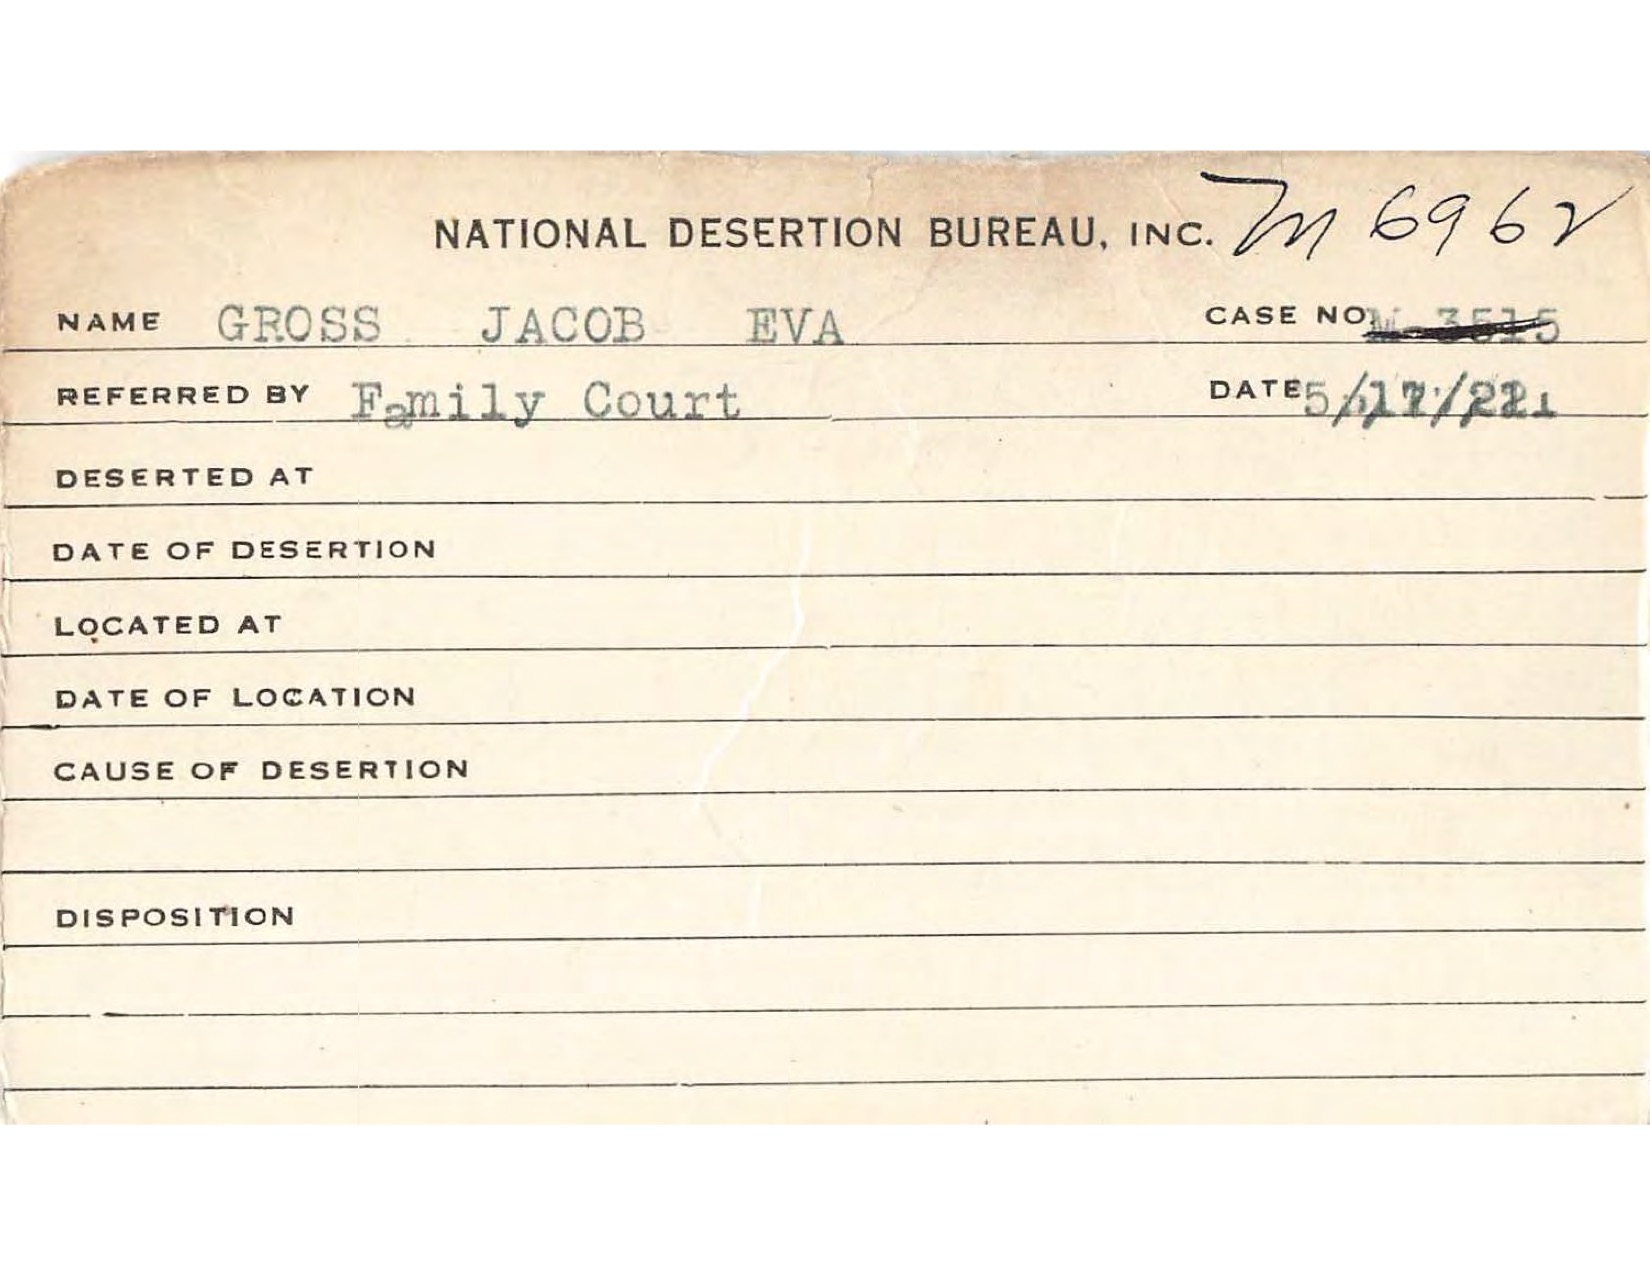 NATIONAL DESERTION BUREAU, INC. M 6962
NAME GROSS JACOB EVA CASE NO. M 3515
REFERRED BY Family Court DATE
DESERTED AT
DATE OF DESERTION
LOCATED AT
DATE OF LOCATION
CAUSE OF DESERTION
DISPOSITION